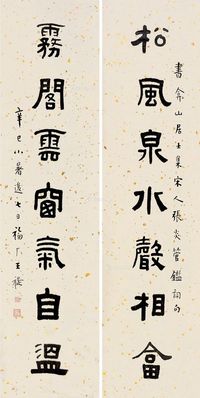 書弇山居士集宋人張炎管鑑詞句
松風泉水聲相畣
霧閣雲窗氣自溫
辛巳小暑後七日福厂王褆